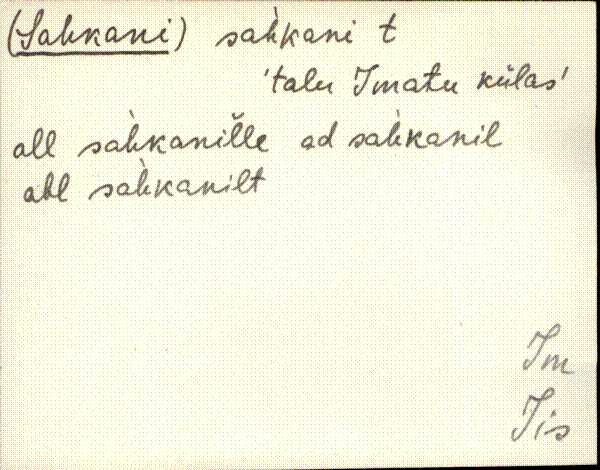 (Sahkani) sah̀kani t
'talu Imatu külas'
all sah̀kanil̆le ad sah̀kanil
abl sah̀kanilt
Im
Jis